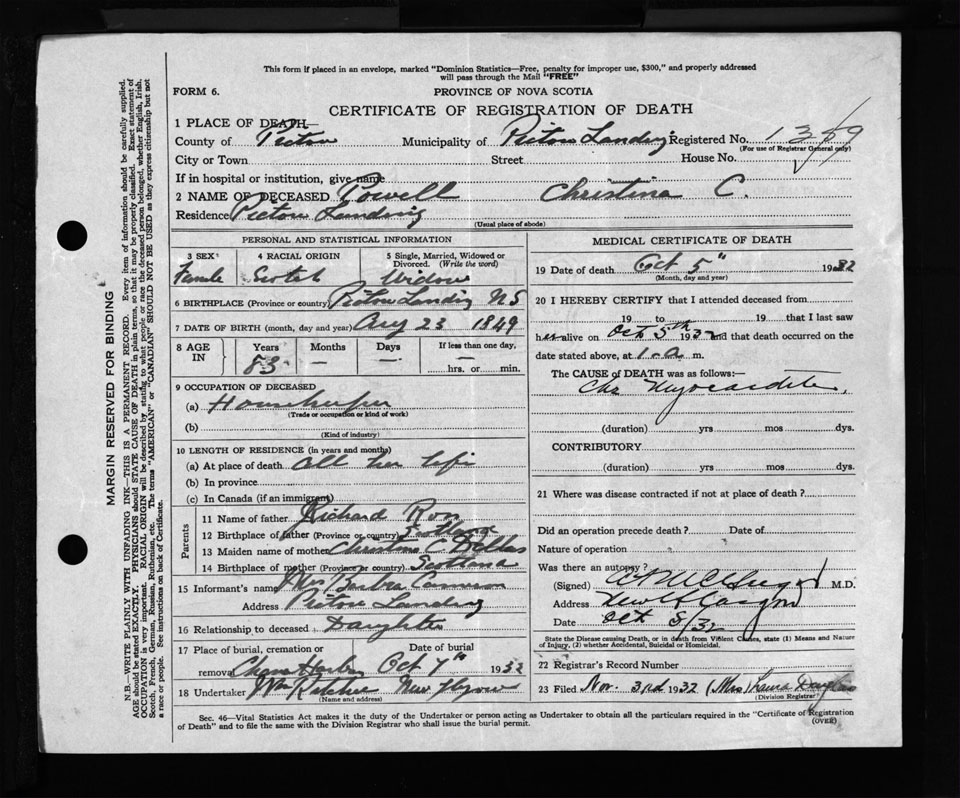 This form if placed in an envelope, marked "Dominion Statistics—Free, penalty for improper use, $300," and properly addressed
will pass through the Mail "FREE"
FORM 6. PROVINCE OF NOVA SCOTIA
CERTIFICATE OF REGISTRATION OF DEATH
1 PLACE OF DEATH—
County of Pictou Municipality of Pictou Landing Registered No.
(For use of Registrar General only)
City or Town Street House No.
If in hospital or institution, give name
2 NAME OF DECEASED Powell Christina C.
Residence Pictou Landing
(Usual place of abode)
PERSONAL AND STATISTICAL INFORMATION
3 SEX 4 RACIAL ORIGIN 5 Single, Married, Widowed or
Divorced. (Write the word)
Female Scotch Widow
6 BIRTHPLACE (Province or country) Pictou Landing NS
7 DATE OF BIRTH (month, day and year) Aug 23 1849
8 AGE IN Years Months Days If less than one day,
83 — — —
hrs. or min.
9 OCCUPATION OF DECEASED
(a) Housekeeper
(Trade or occupation or kind of work)
(b)
(Kind of industry)
10 LENGTH OF RESIDENCE (in years and months)
(a) At place of death all her life
(b) In province
(c) In Canada (if an immigrant)
Parents
11 Name of father Richard Ross
12 Birthplace of father (Province or country) Scotland
13 Maiden name of mother Christina C Dallas
14 Birthplace of mother (Province or country) Scotland
15 Informant's name Mrs Barbra Cameron
Address Pictou Landing
16 Relationship to deceased Daughter
17 Place of burial, cremation or Date of burial
removal Oct 7th 1932
18 Undertaker New Glasgow
(Name and address)
MEDICAL CERTIFICATE OF DEATH
19 Date of death Oct 5th 1932
(Month, day and year)
20 I HEREBY CERTIFY that I attended deceased from
19 to 19 that I last saw
her alive on Oct 5th 1932 and that death occurred on the
date stated above, at 1-a m.
The CAUSE of DEATH was as follows:—
Chr Myocarditis
(duration) yrs mos dys.
CONTRIBUTORY
(duration) yrs mos dys.
21 Where was disease contracted if not at place of death?
Did an operation precede death? Date of
Nature of operation
Was there an autopsy?
(Signed) M.D.
Address New Glasgow
Date Oct
State the Disease causing Death, or in death from Violent Causes, state (1) Means and Nature
of Injury, (2) whether Accidental, Suicidal or Homicidal.
22 Registrar's Record Number
23 Filed Nov. 3rd 1932 (Mrs) Laura Douglas
(Division Registrar)
Sec. 46—Vital Statistics Act makes it the duty of the Undertaker or person acting as Undertaker to obtain all the particulars required in the "Certificate of Registration
of Death" and to file the same with the Division Registrar who shall issue the burial permit. (OVER)
MARGIN RESERVED FOR BINDING
N.B.—WRITE PLAINLY WITH UNFADING INK—THIS IS A PERMANENT RECORD. Every item of information should be carefully supplied.
AGE should be stated EXACTLY. PHYSICIANS should STATE CAUSE OF DEATH in plain terms, so that it may be properly classified. Exact statement of
OCCUPATION is very important. RACIAL ORIGIN will be described by stating to what people or race the deceased person belonged, whether English, Irish,
Scotch, French, German, Russian, Ruthenian, etc. The terms "AMERICAN" or "CANADIAN" SHOULD NOT BE USED as they express citizenship but not
a race or people. See instructions on back of Certificate.